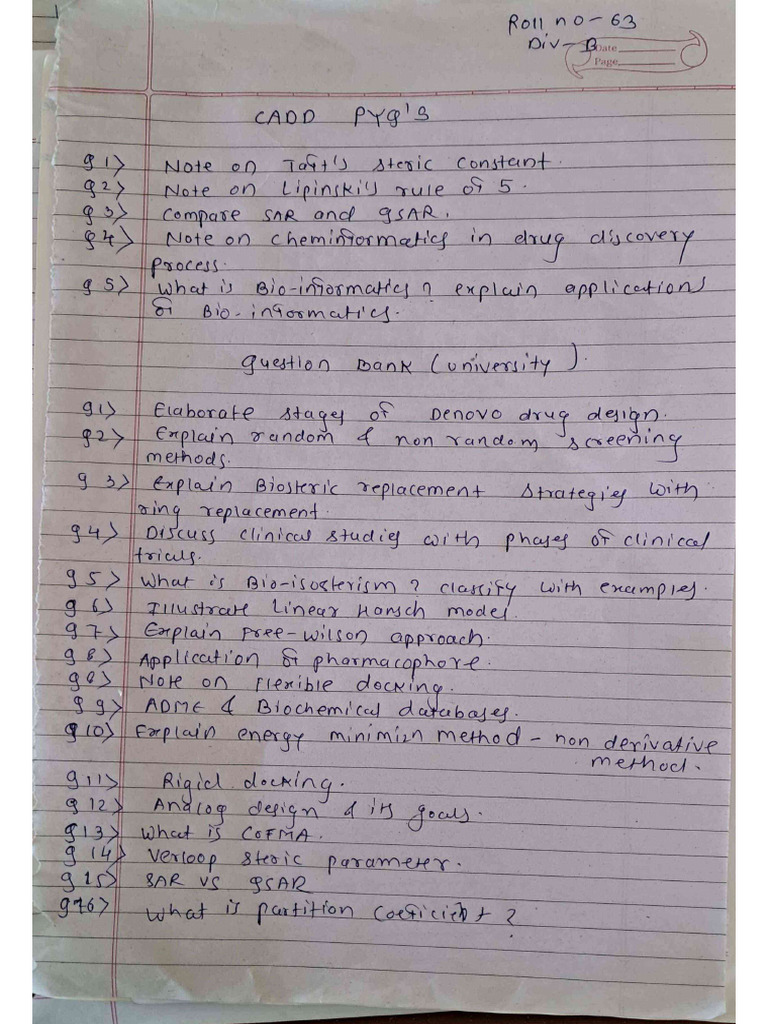 Roll no - 63
Div - B
Date
Page
CADD PYQ's
Q1> Note on Taft's steric constant.
Q2> Note on Lipinski's rule of 5.
Q3> Compare SAR and QSAR.
Q4> Note on cheminformatics in drug discovery
process.
Q5> What is Bio-informatics? explain applications
of Bio-informatics.
Question Bank (university).
Q1> Elaborate stages of Denovo drug design.
Q2> Explain random & non random screening
methods.
Q3> Explain Biosteric replacement strategies with
ring replacement.
Q4> Discuss clinical studies with phases of clinical
trials.
Q5> What is Bio-isosterism? classify with examples.
Q6> Illustrate linear Hansch model.
Q7> Explain Free-Wilson approach.
Q8> Application of pharmacophore.
Q8> Note on Flexible docking.
Q9> ADME & Biochemical databases.
Q10> Explain energy minimizn method - non derivative
method.
Q11> Rigid docking.
Q12> Analog design & its goals.
Q13> What is CoFMA.
Q14> Verloop steric parameter.
Q15> SAR VS QSAR
Q16> What is partition coefficient?